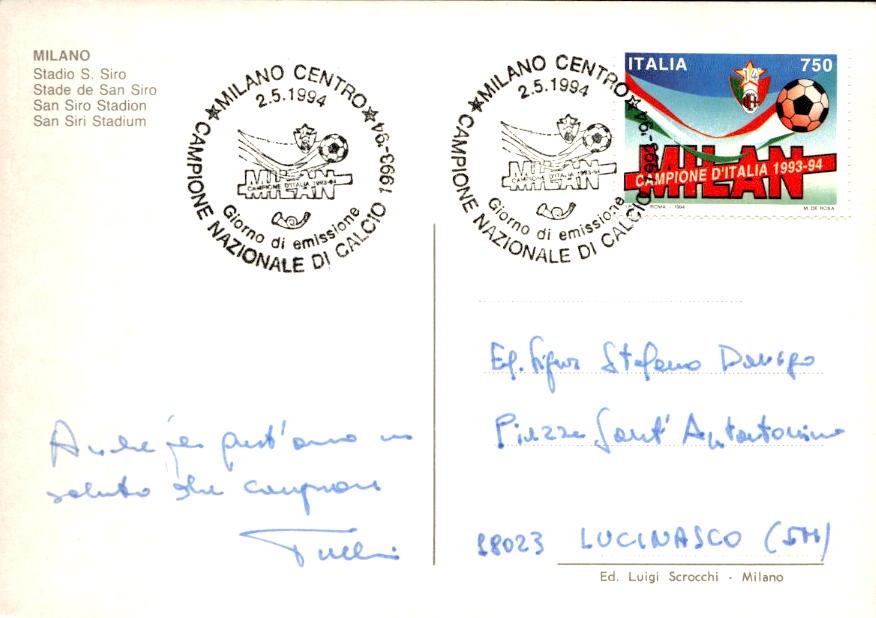 MILANO
Stadio S. Siro
Stade de San Siro
San Siro Stadion
San Siri Stadium
MILANO CENTRO
2.5.1994
MILAN
CAMPIONE D'ITALIA 1993-94
Giorno di emissione
CAMPIONE NAZIONALE DI CALCIO 1993-94
MILANO CENTRO
2.5.1994
MILAN
CAMPIONE D'ITALIA 1993-94
Giorno di emissione
CAMPIONE NAZIONALE DI CALCIO 1993-94
ITALIA 750
14°
MILAN
CAMPIONE D'ITALIA 1993-94
ROMA - 1994 M. DE ROSA
Anche per quest'anno un
saluto da campioni
Eg. Signor Stefano Davigo
Piazza Sant' Antonino
18023 LUCINASCO (IM)
Ed. Luigi Scrocchi - Milano